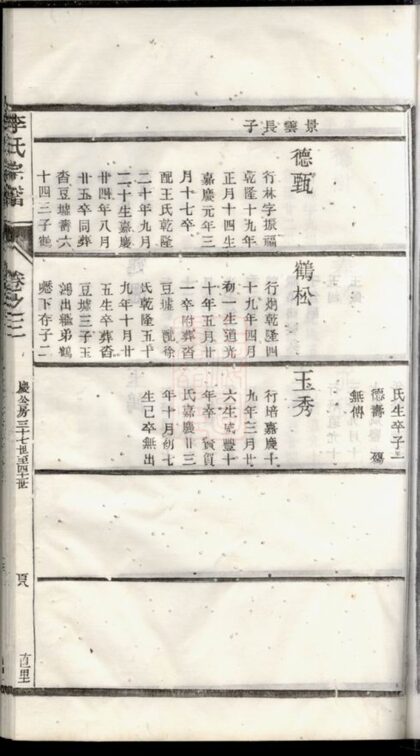 氏生卒子二
德壽 殤
無傳
景雲長子
德甄
行林字振福
乾隆十九年
正月十四生
嘉慶元年三
月十七卒
配王氏乾隆
二十年九月
二十生嘉慶
廿四年八月
廿五卒同葬
沓豆墟壽六
十四三子
鶴松
十九年四月
初一生道光
十年五月廿
一卒附葬沓
豆墟 配徐
氏乾隆五十
九年十月廿
五生卒葬沓
豆墟三子玉
鴻出繼弟鶴
下存子二
玉秀
行培嘉慶十
九年三月廿
六生咸豐十
年卒 賀
氏嘉慶廿三
年十月初七
生已卒無出
李氏宗譜
卷之三
慶公房三十七世至四十世